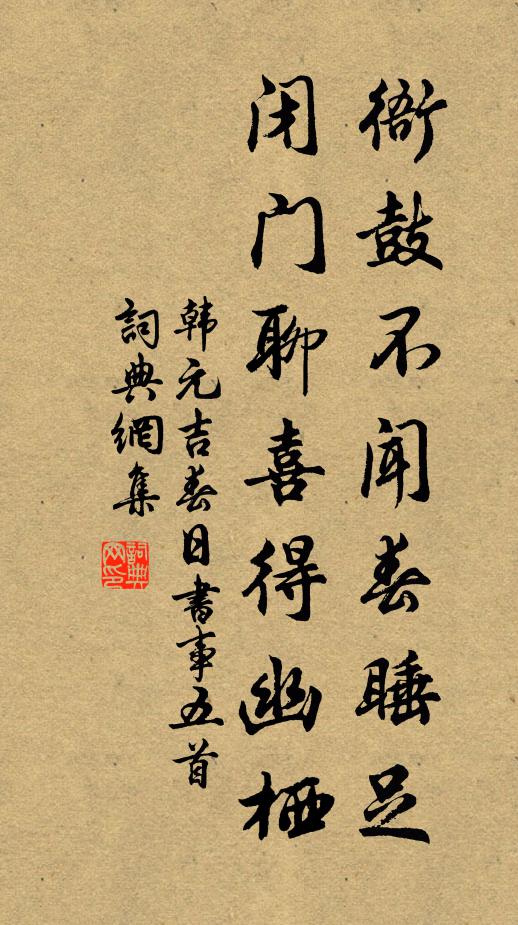 衙鼓不闻春睡足
闭门聊喜得幽栖
韩元吉春日书事五首
詞典網集
詞典网印